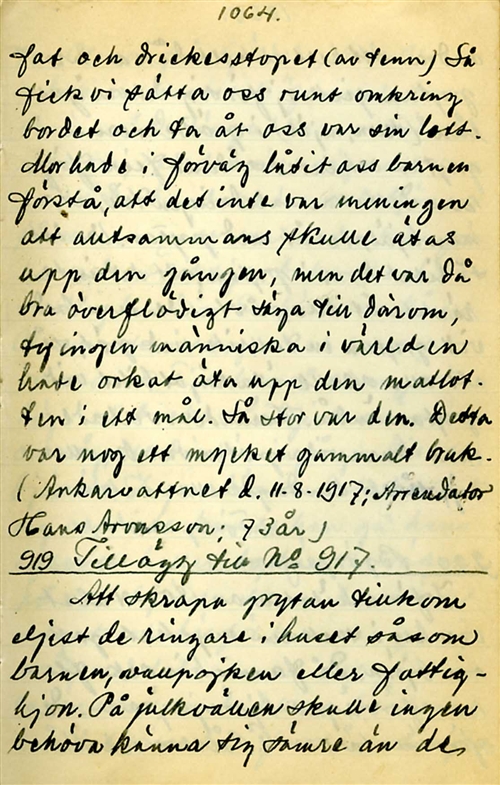 1064.
fat och drickesstopet (av tenn) Så
fick vi sätta oss runt omkring
bordet och ta åt oss var sin lott.
Mor hade i förväg låtit oss barnen
förstå, att det inte var meningen
att alltsammans skulle ätas
upp den gången, men det var då
bra överflödigt säga till därom,
ty ingen människa i världen
hade orkat äta upp den matlot-
ten i ett mål. Så stor var den. Detta
var nog ett mycket gammalt bruk.
(Ankarvattnet d. 11-8-1917; Arrendator
Hans Arvnsson; 73 år)
919 Tillägg till No 917.
Att skrapa grytan tillkom
eljest de ringare i huset såsom
barnen, vallpojken eller fattig-
hjon. På julkvällen skulle ingen
behöva känna sig sämre än de